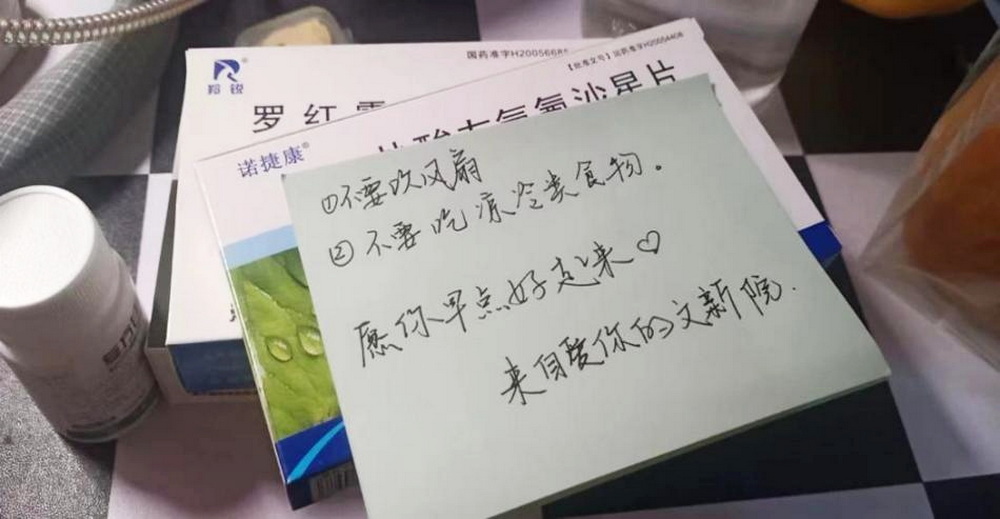 羚锐
国药准字H2005668
罗红
诺捷康®
【批准文号】国药准字H20054408
氧氟沙星片
①不要吹风扇
②不要吃凉冷类食物。
愿你早点好起来♡
来自爱你的文新院.